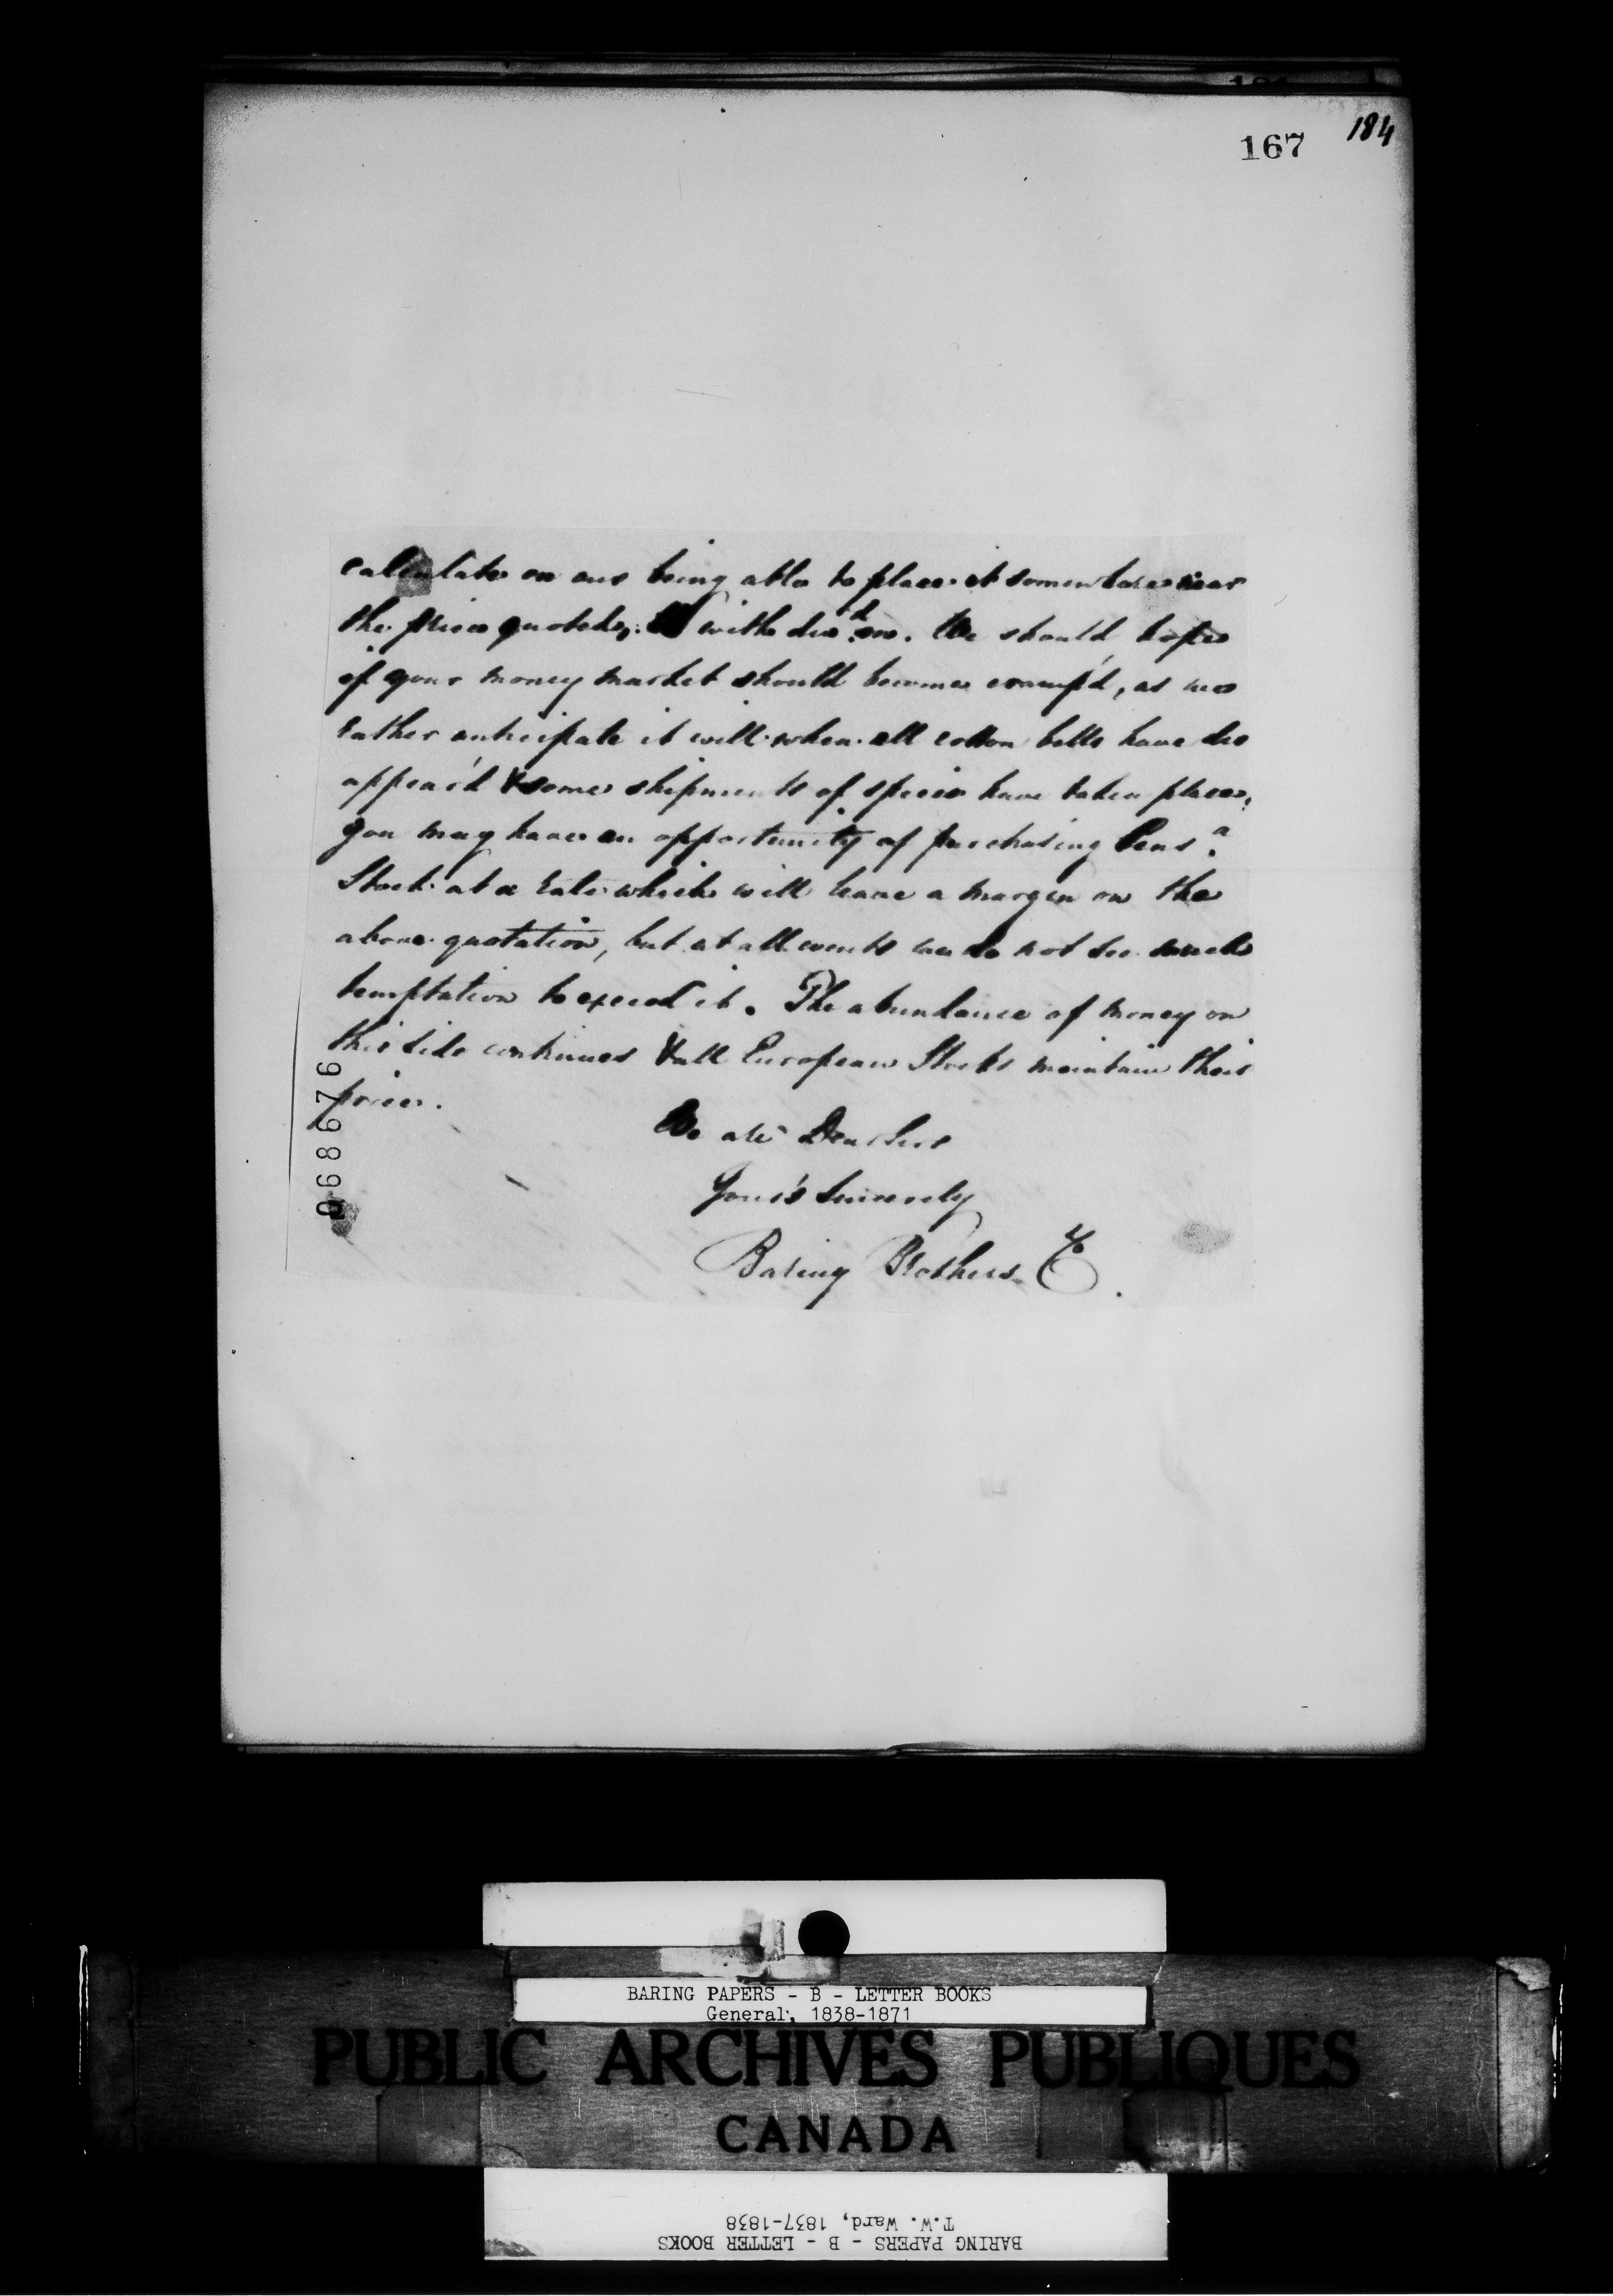 184
167
calculate on our being able to place it somewhere near
the price quoted, with divd. on. We should hope
if your money market should become cramp'd, as we
rather anticipate it will when all cotton bills have dis
appear'd & some shipments of specie have taken place,
you may have an opportunity of purchasing Pensa.
Stock at a rate which will leave a margin on the
above quotation, but at all events we do not see much
temptation to exceed it. The abundance of money on
this side continues & all European Stocks maintain their
prices.
We are Dear Sirs
Your's Sincerely
Baring Brothers & Co.
068676
BARING PAPERS - B - LETTER BOOKS
General, 1838-1871
PUBLIC ARCHIVES PUBLIQUES
CANADA
T.W. Ward, 1837-1838
BARING PAPERS - B - LETTER BOOKS